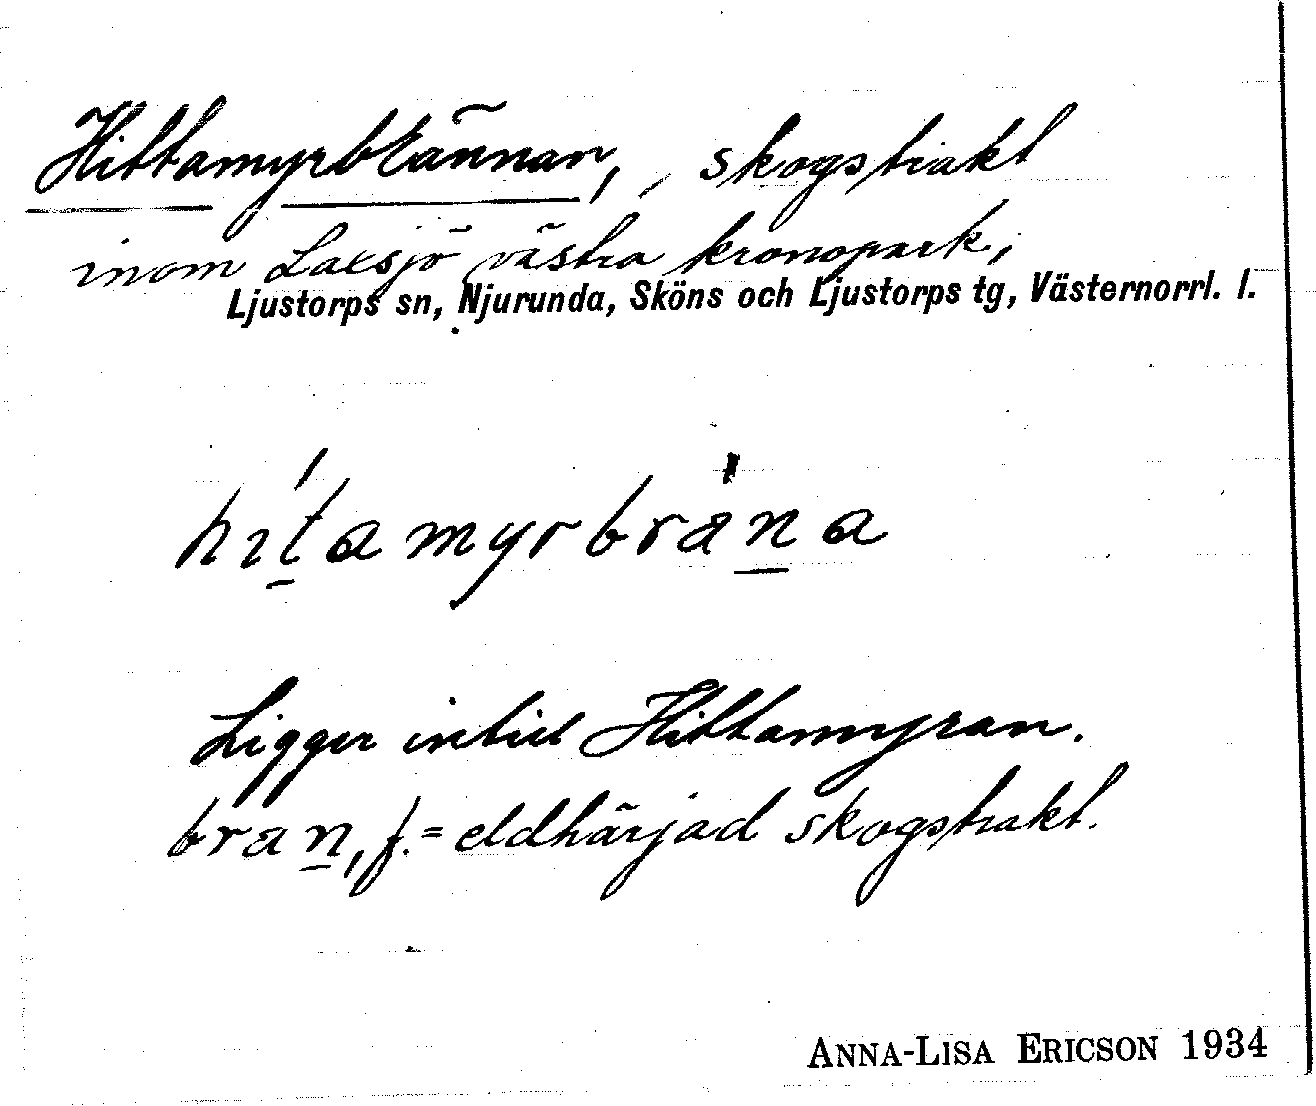 Hittamyrbrännan, , skogstrakt
inom Laxsjö västra kronopark,
Ljustorps sn, Njurunda, Sköns och Ljustorps tg, Västernorrl. l.
hítamyrbrä̀na
Ligger intill Hittamyran.
bran, f. = eldhärjad skogstrakt.
ANNA-LISA ERICSON 1934